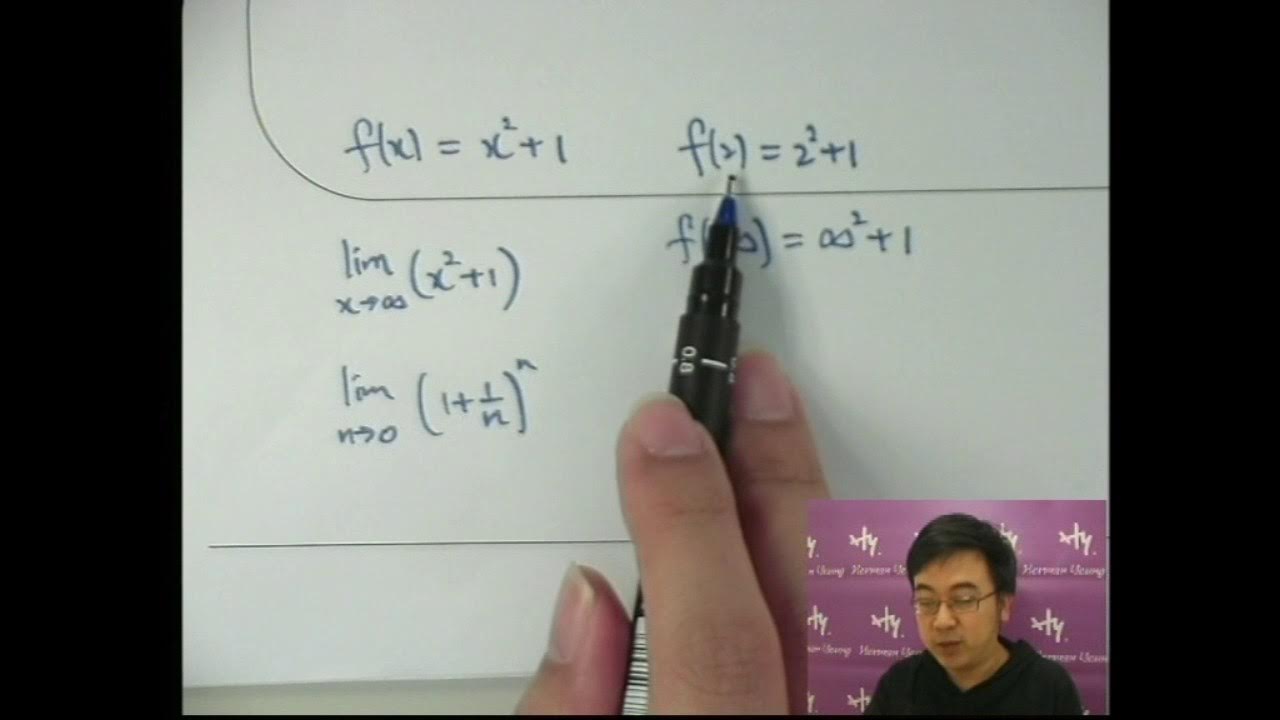 f(x) = x² + 1
f(2) = 2² + 1
f(∞) = ∞² + 1
lim x→∞ (x² + 1)
lim n→0 (1 + 1/n)ⁿ
0.8
xty.
Herman Yeung